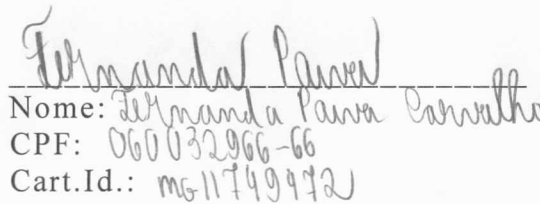 Fernanda Paiva
Nome: Fernanda Paiva Carvalho
CPF: 060032966-66
Cart.Id.: MG11749972